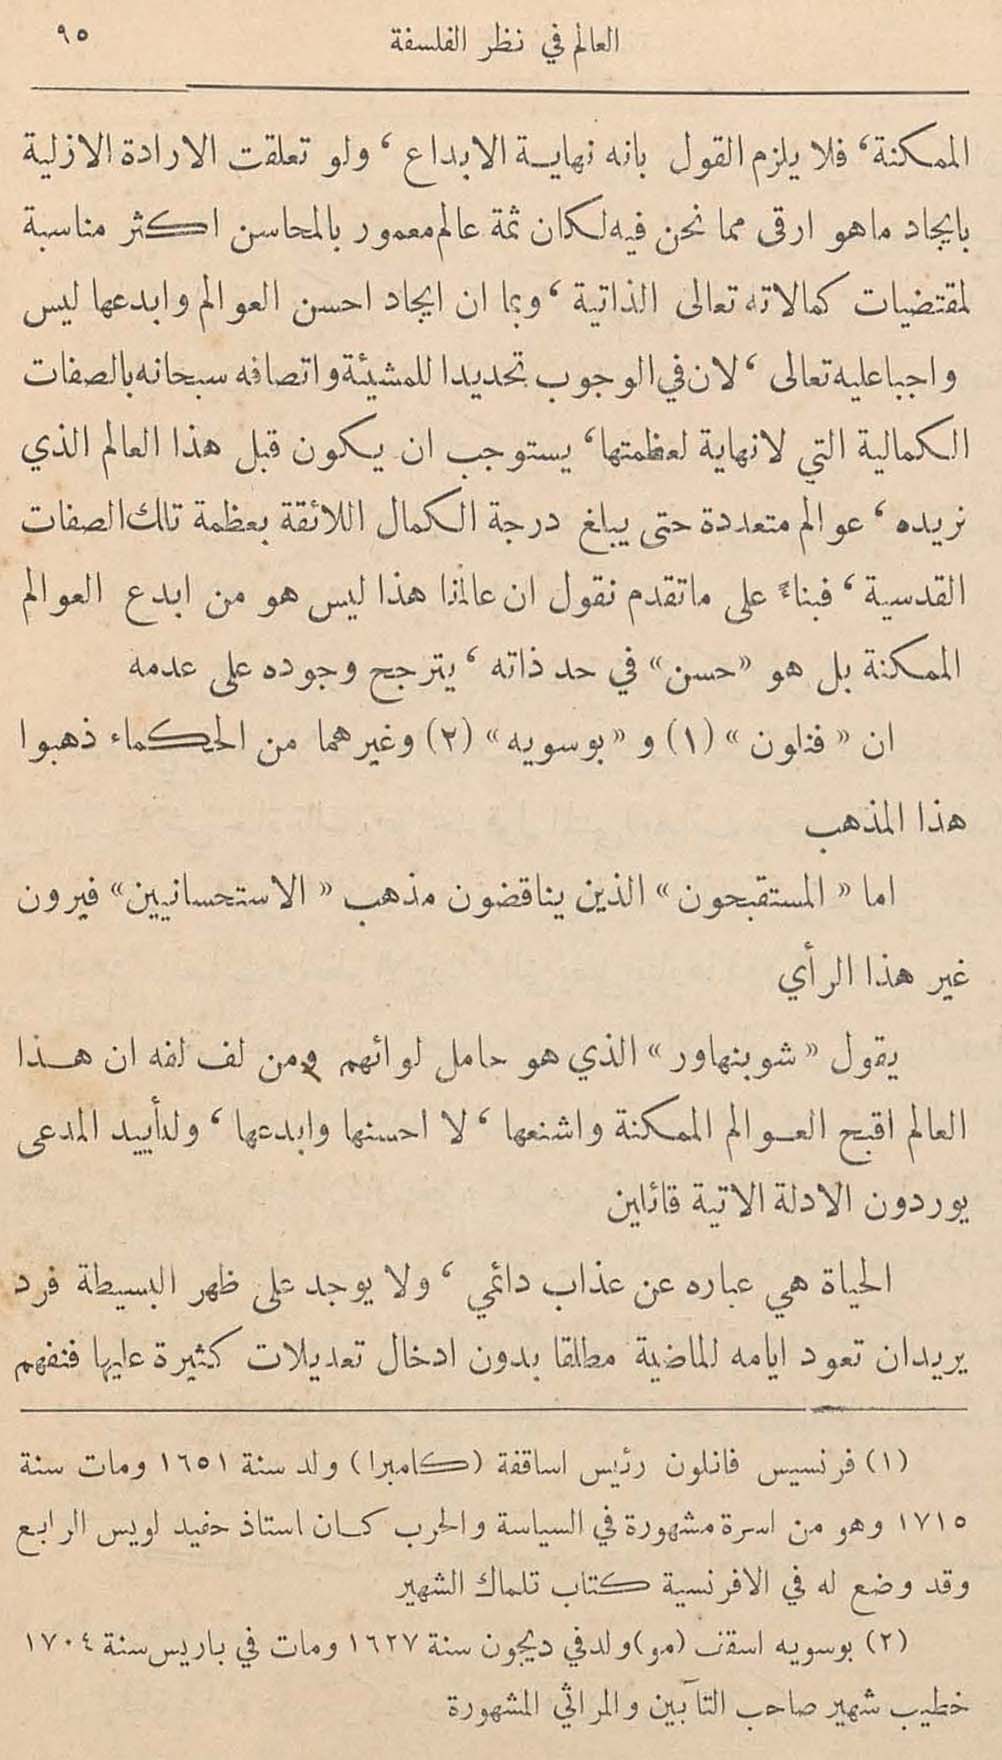 العالم في نظر الفلسفة ٩٥
الممكنة، فلا يلزم القول بانه نهاية الابداع، ولو تعلقت الارادة الازلية
بايجاد ماهو ارقى مما نحن فيه لكان ثمة عالم معمور بالمحاسن اكثر مناسبة
لمقتضيات كمالاته تعالى الذاتية، وبما ان ايجاد احسن العوالم وابدعها ليس
واجبا عليه تعالى، لان في الوجوب تحديدا للمشيئة واتصافه سبحانه بالصفات
الكمالية التي لانهاية لعظمتها، يستوجب ان يكون قبل هذا العالم الذي
نريده، عوالم متعددة حتى يبلغ درجة الكمال اللائقة بعظمة تلك الصفات
القدسية، فبناءً على ماتقدم نقول ان عالمنا هذا ليس هو من ابدع العوالم
الممكنة بل هو «حسن» في حد ذاته، يترجح وجوده على عدمه
ان «فنلون» (١) و «بوسويه» (٢) وغيرهما من الحكماء ذهبوا
هذا المذهب
اما «المستقبحون» الذين يناقضون مذهب «الاستحسانيين» فيرون
غير هذا الرأي
يقول «شوبنهاور» الذي هو حامل لوائهم ومن لف لفه ان هذا
العالم اقبح العوالم الممكنة واشنعها، لا احسنها وابدعها، ولتأييد المدعى
يوردون الادلة الاتية قائلين
الحياة هي عباره عن عذاب دائمي، ولا يوجد على ظهر البسيطة فرد
يريدان تعود ايامه للماضية مطلقا بدون ادخال تعديلات كثيرة عليها فنفهم
(١) فرنسيس فانلون رئيس اساقفة (كامبرا) ولد سنة ١٦٥١ ومات سنة
١٧١٥ وهو من اسرة مشهورة في السياسة والحرب كان استاذ حفيد لويس الرابع
وقد وضع له في الافرنسية كتاب تلماك الشهير
(٢) بوسويه اسقف (مو) ولد في ديجون سنة ١٦٢٧ ومات في باريس سنة ١٧٠٤
خطيب شهير صاحب التآبين والمراثي المشهورة